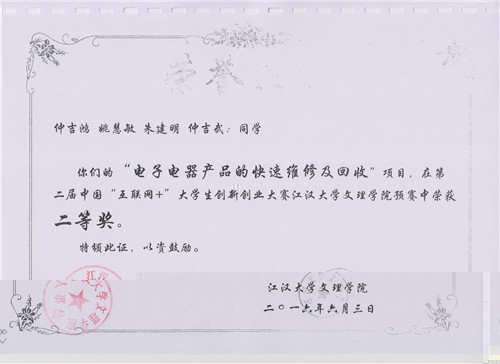 荣誉
仲吉鸿 姚慧敏 朱建明 仲吉武：同学
你们的“电子电器产品的快速维修及回收”项目，在第
二届中国“互联网+”大学生创新创业大赛江汉大学文理学院预赛中荣获
二等奖。
特颁此证，以资鼓励。
江汉大学文理学院
二〇一六年六月三日